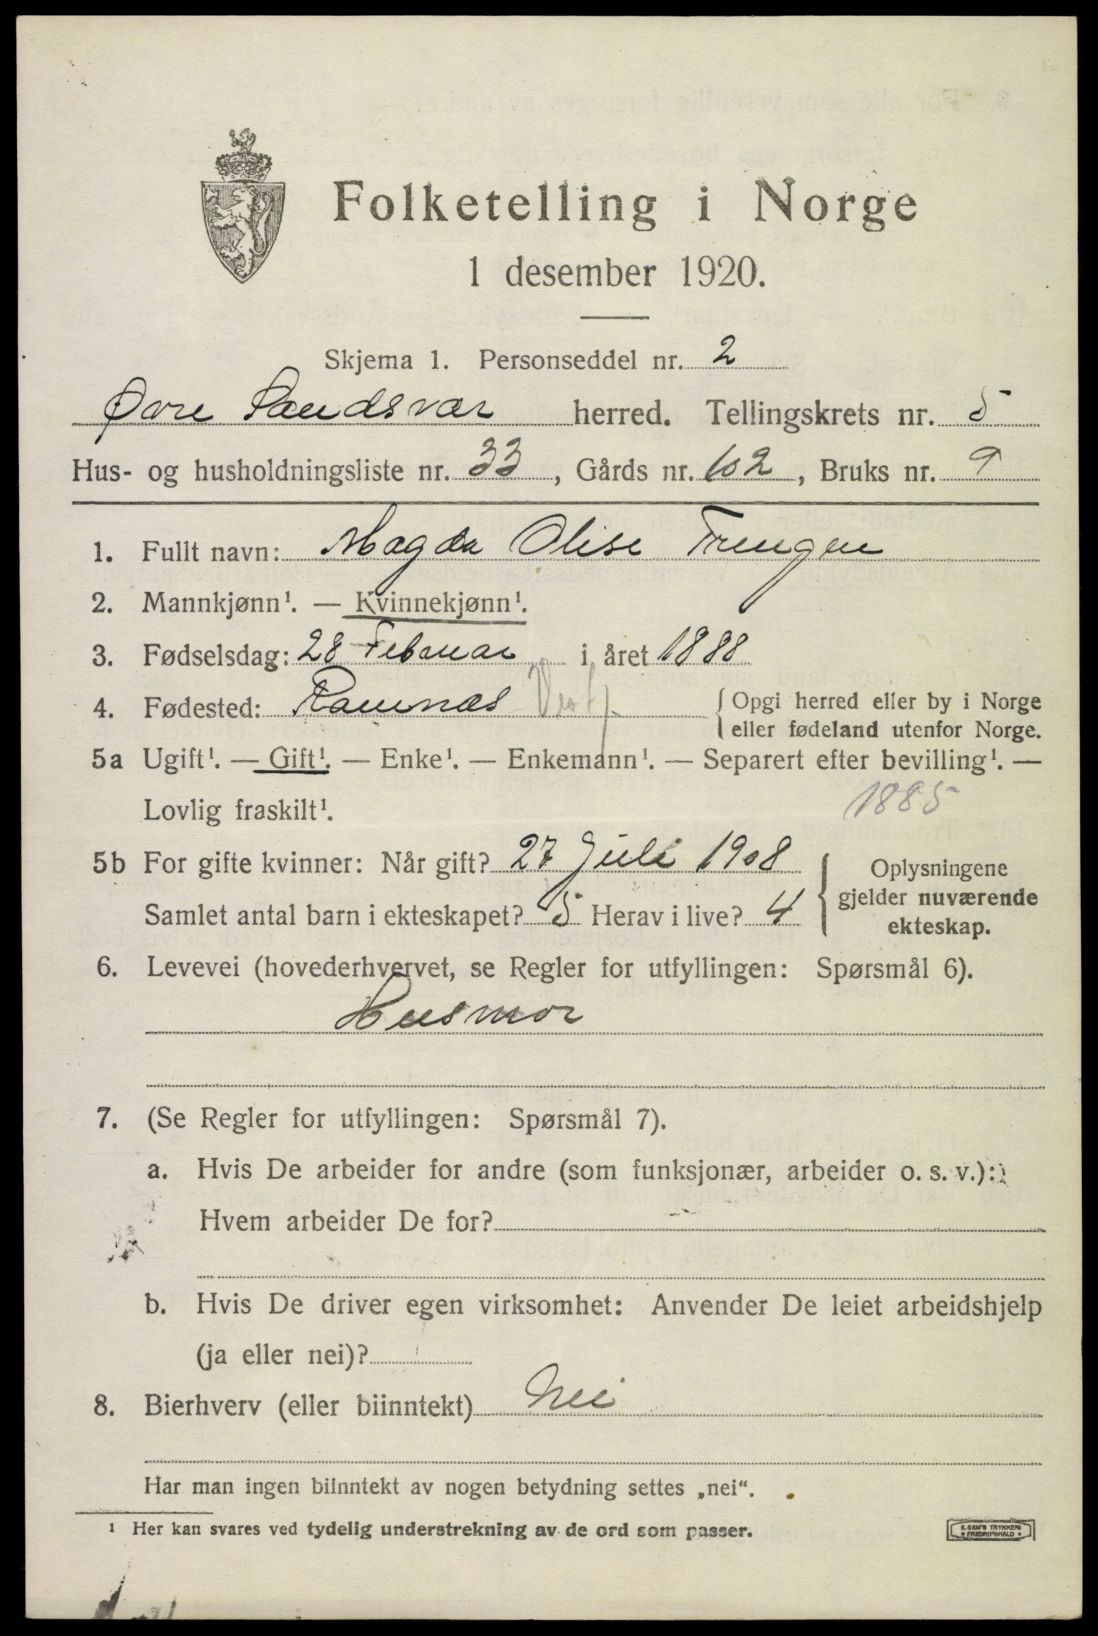 Folketelling i Norge
1 desember 1920.
Skjema 1. Personseddel nr. 2
Øvre Sandsvær herred. Tellingskrets nr. 5
Hus- og husholdningsliste nr. 33, Gårds nr. 102, Bruks nr. 9
1. Fullt navn: Magda Olise Trengen
2. Mannkjønn¹. — Kvinnekjønn¹.
3. Fødselsdag: 28 Februar i året 1888
4. Fødested: Ramnæs Vestf. { Opgi herred eller by i Norge
eller fødeland utenfor Norge.
5a Ugift¹. — Gift¹. — Enke¹. — Enkemann¹. — Separert efter bevilling¹. —
Lovlig fraskilt¹. 1885
5b For gifte kvinner: Når gift? 27 Juli 1908
Samlet antal barn i ekteskapet? 5 Herav i live? 4
{ Oplysningene
gjelder nuværende
ekteskap.
6. Levevei (hovederhvervet, se Regler for utfyllingen: Spørsmål 6).
Husmor
7. (Se Regler for utfyllingen: Spørsmål 7).
a. Hvis De arbeider for andre (som funksjonær, arbeider o. s. v.):
Hvem arbeider De for?
b. Hvis De driver egen virksomhet: Anvender De leiet arbeidshjelp
(ja eller nei)?
8. Bierhverv (eller biinntekt) Nei
Har man ingen biinntekt av nogen betydning settes „nei“.
¹ Her kan svares ved tydelig understrekning av de ord som passer.
E. SEM'S TRYKKERI
FREDRIKSHALD